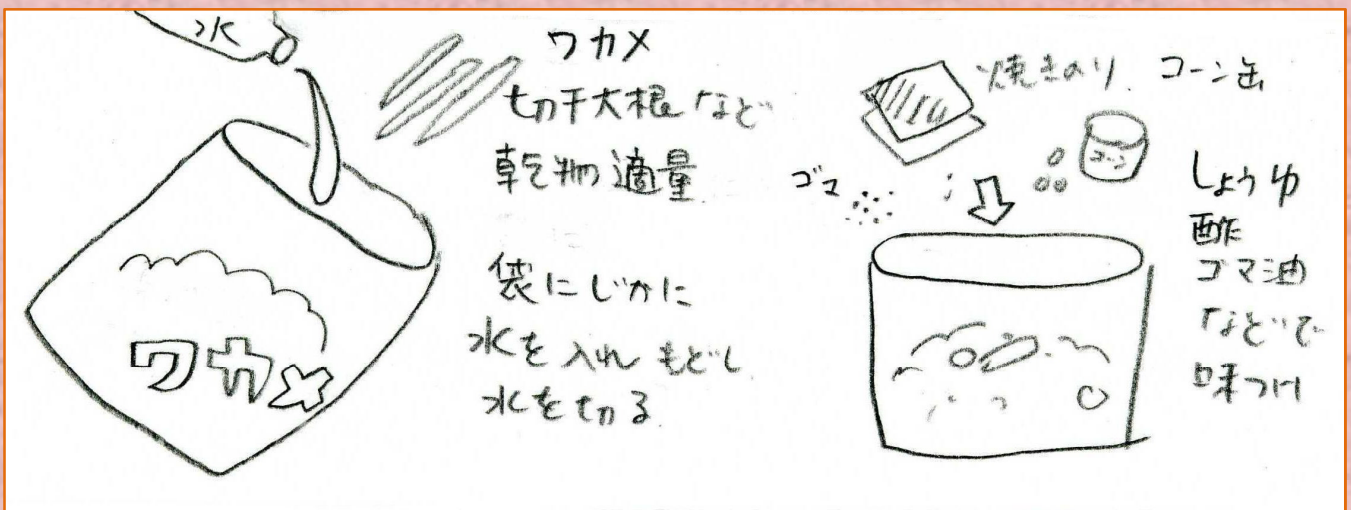 水
ワカメ
切干大根など
乾物適量
袋にじかに
水を入れもどし
水を切る
ワカメ
焼きのり
コーン缶
コーン
ゴマ
しょうゆ
酢
ゴマ油
などで
味つけ